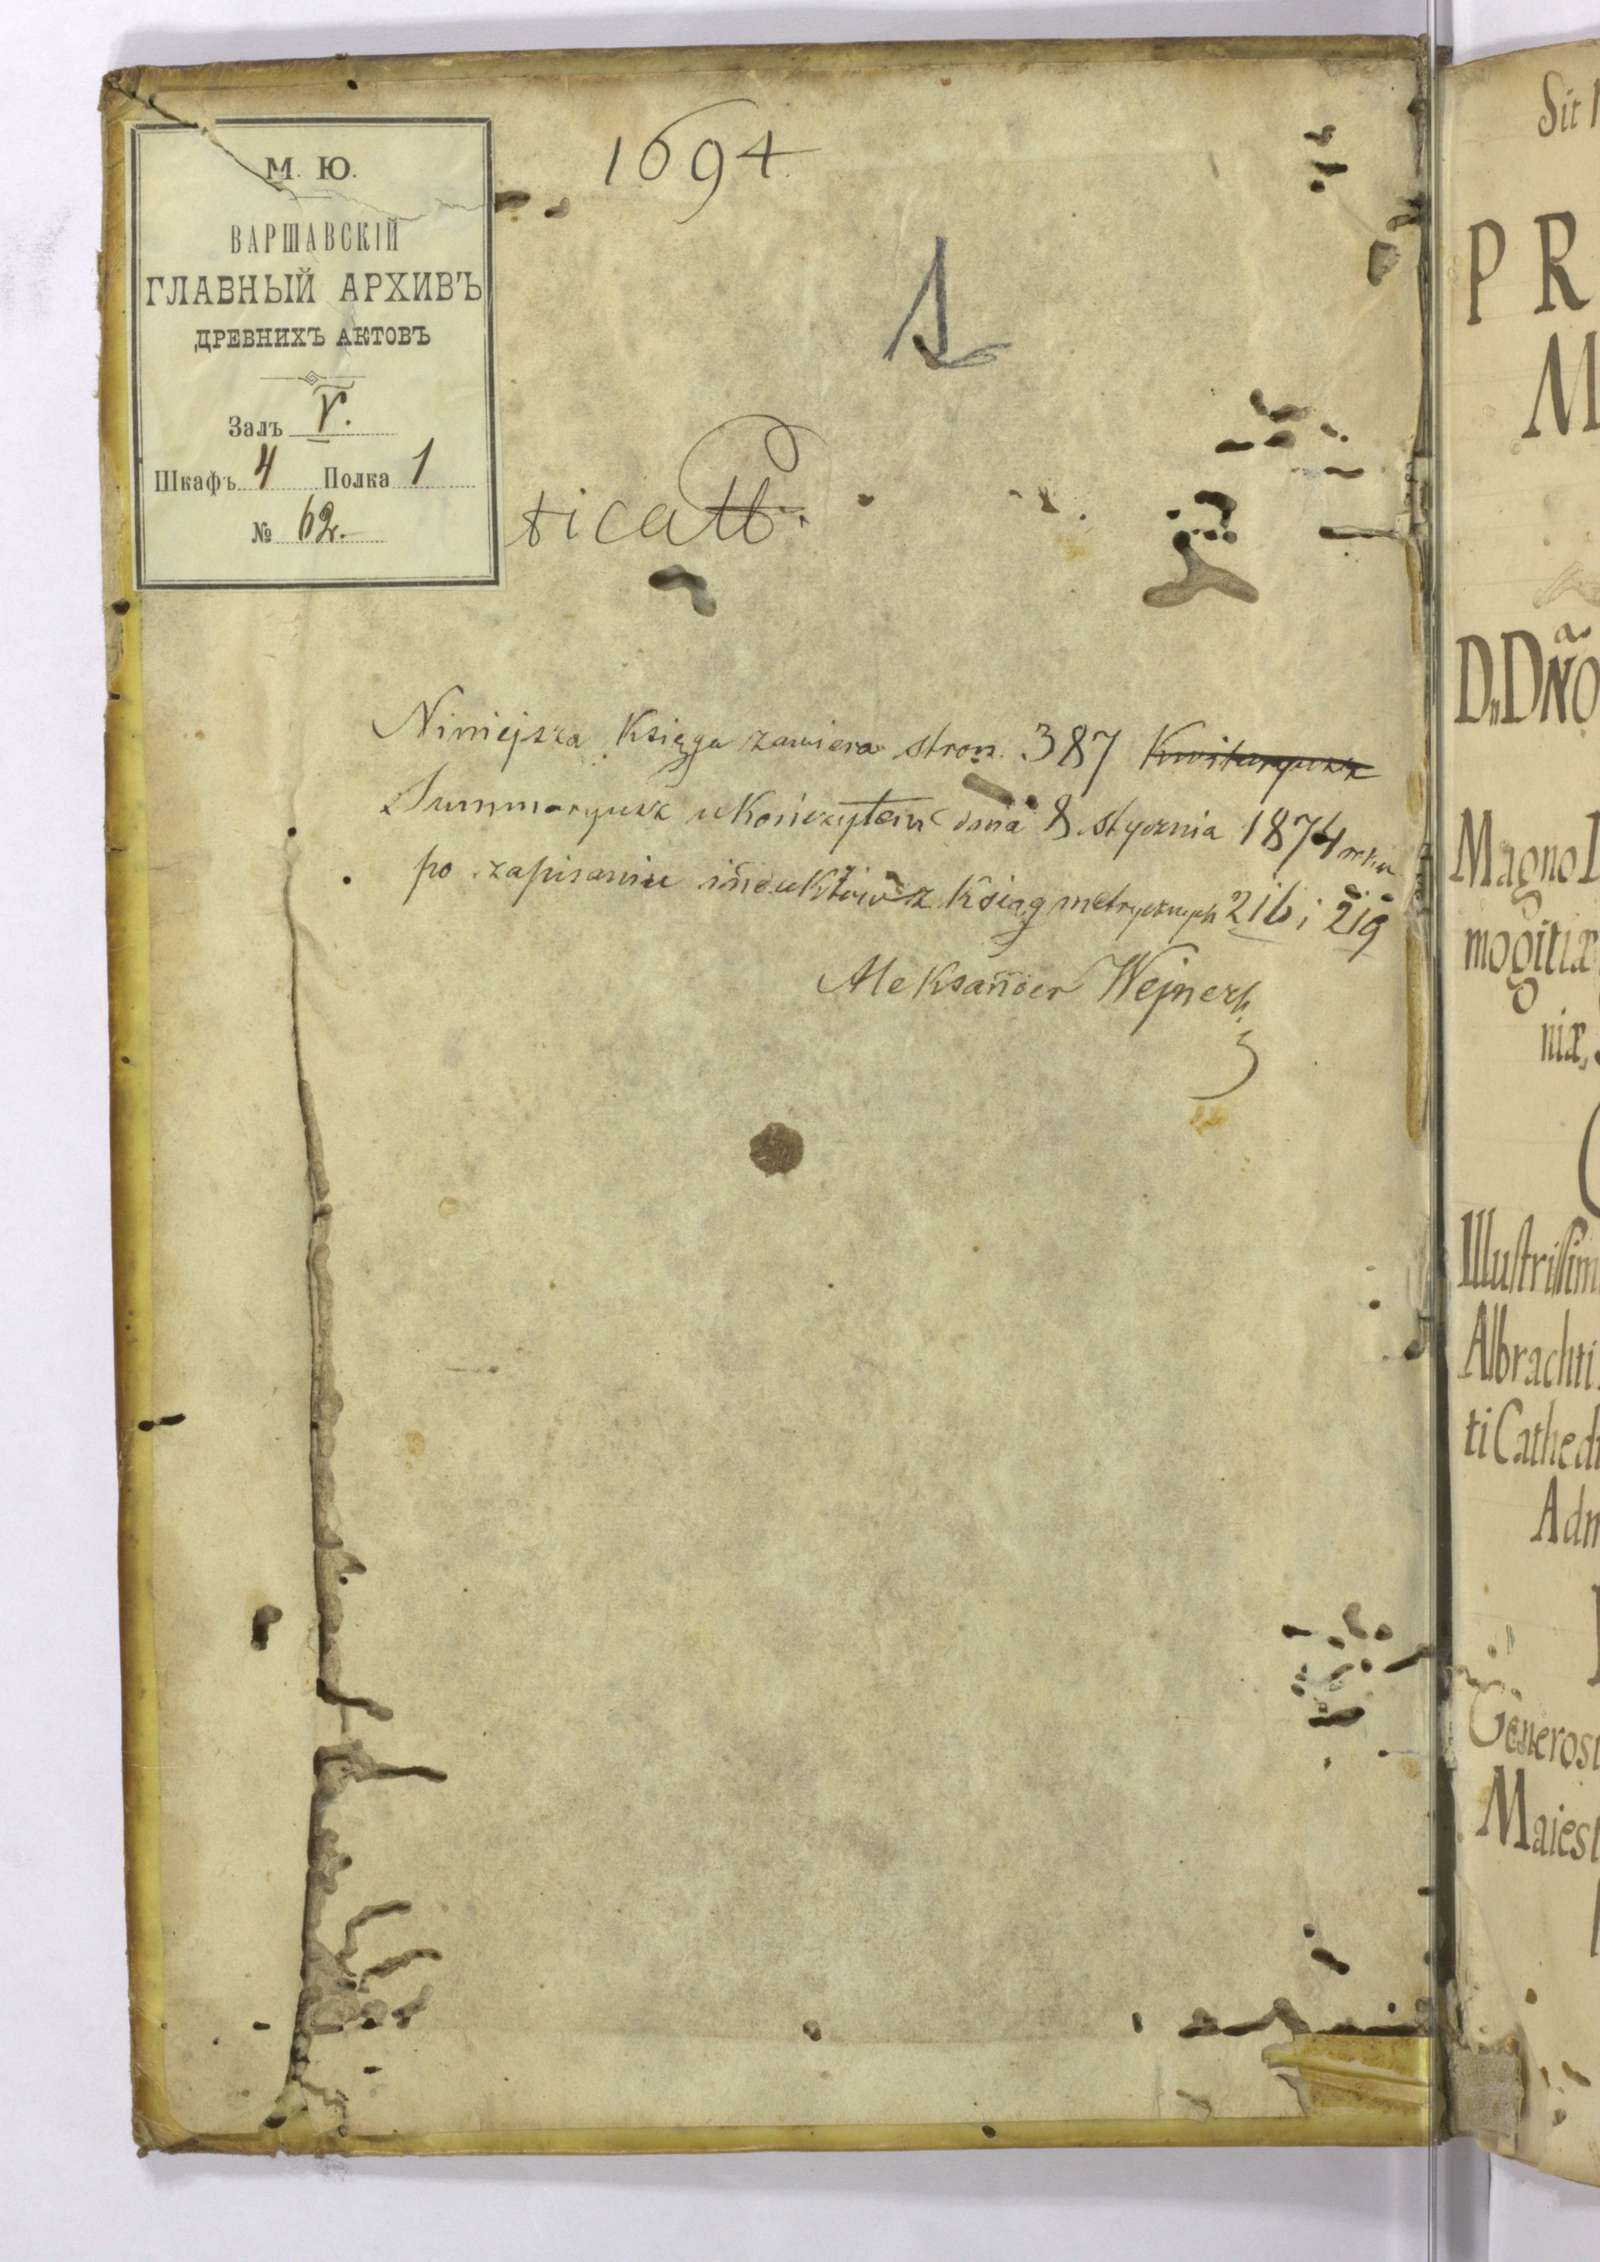 1694
М. Ю.
ВАРШАВСКІЙ
ГЛАВНЫЙ АРХИВЪ
ДРЕВНИХЪ АКТОВЪ
Залъ V.
Шкафъ 4 Полка 1
№ 62.
1
Niniejsza Księga zawiera stron 387 Kwitaryusz
Summaryusz ukończyłem dnia 8 stycznia 1874 roku
po zapisaniu induktów z Ksiąg metrycznych 216 i 219
Aleksander Wejnert
Sit
PR
M
D,,DÑO
Magno
mogitiæ
niæ,
Illustrissim
Albrachti
ti Cathed
Adm
Generosi
Maiest